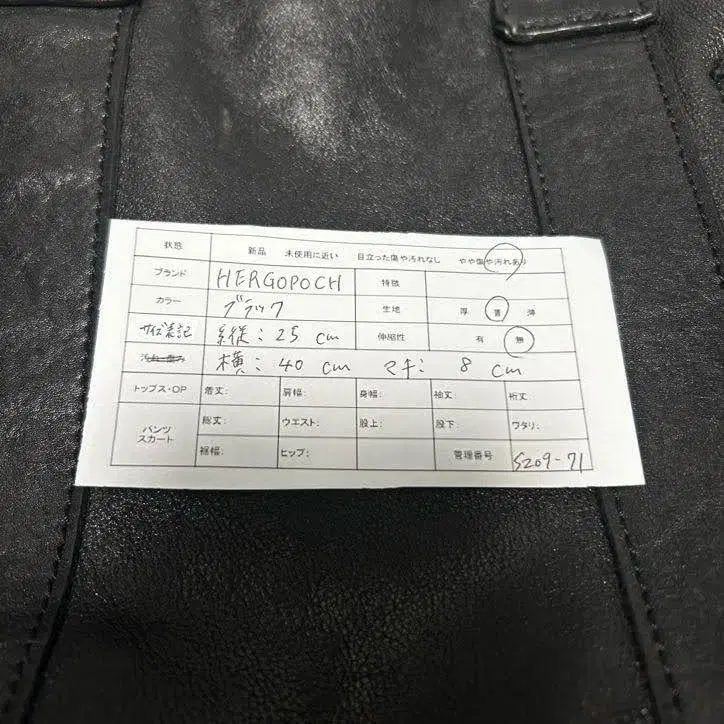 状態 新品 未使用に近い 目立った傷や汚れなし やや傷や汚れあり
ブランド HERGOPOCH 特徴
カラー ブラック 生地 厚 普 薄
サイズ表記 縦:25cm 伸縮性 有 無
横:40cm マチ:8cm
トップス・OP 着丈: 肩幅: 身幅: 袖丈: 裄丈:
パンツ 総丈: ウエスト: 股上: 股下: ワタリ:
スカート
裾幅: ヒップ: 管理番号 S209-71